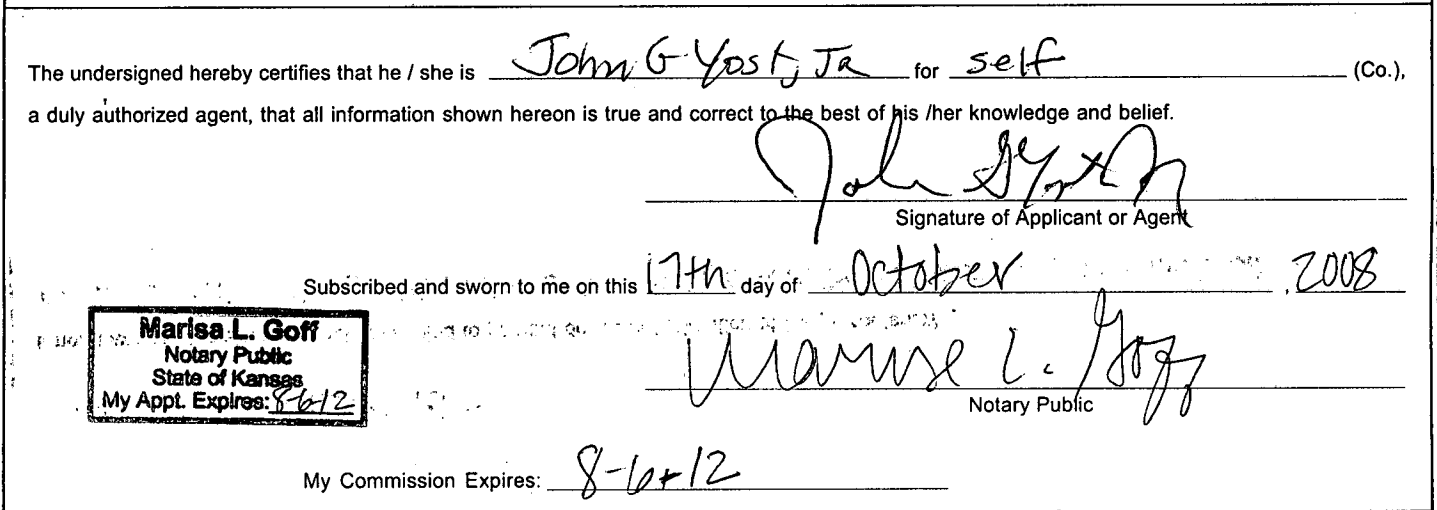 The undersigned hereby certifies that he / she is John G Yost, Jr for self (Co.),
a duly authorized agent, that all information shown hereon is true and correct to the best of his /her knowledge and belief.
John G Yost Jr
Signature of Applicant or Agent
Subscribed and sworn to me on this 17th day of October , 2008
Marisa L. Goff
Notary Public
State of Kansas
My Appt. Expires: 8-6-12
Marisa L. Goff
Notary Public
My Commission Expires: 8-6-12